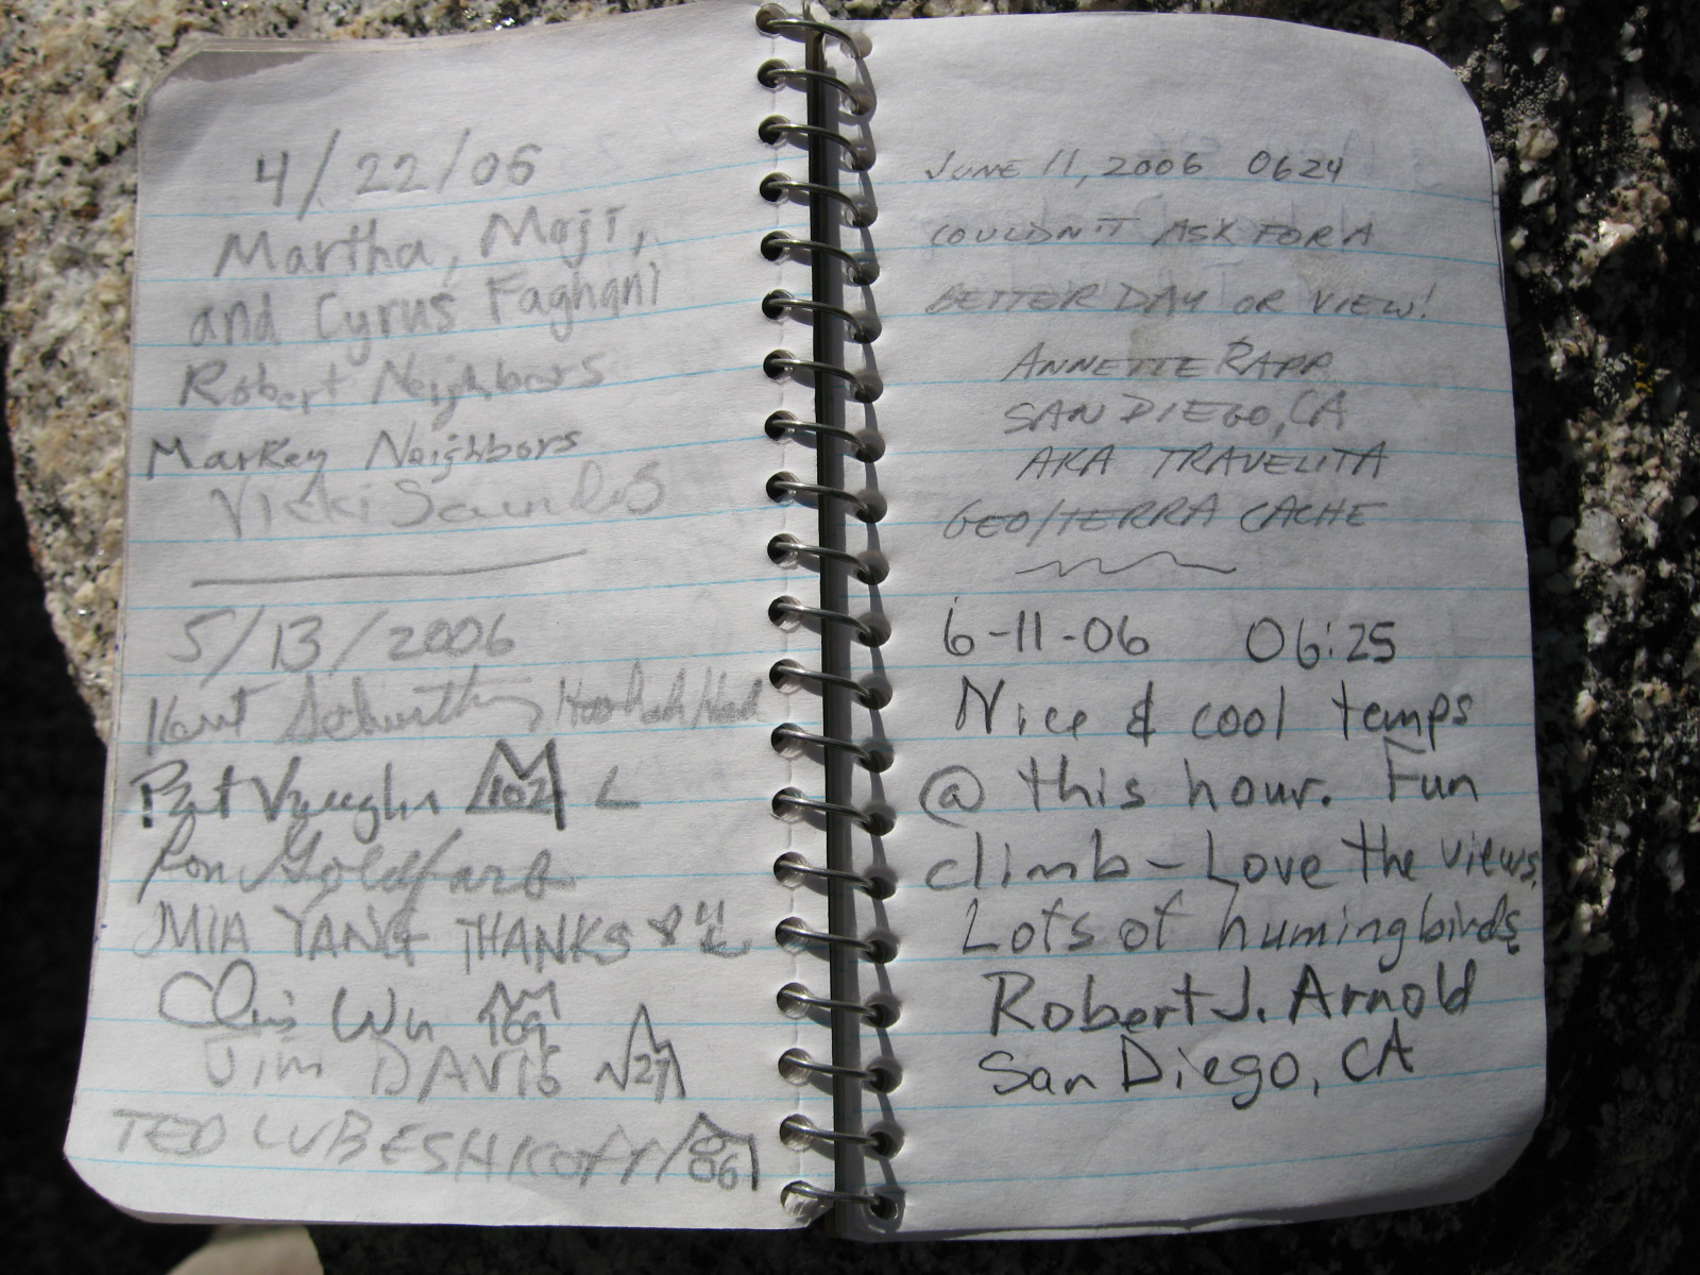 4/22/06
Martha, Moji,
and Cyrus Faghani
Robert Neighbors
Markey Neighbors
Vicki
5/13/2006
Kurt
Pat Vaughn 102
Ron Goldfarb
MIA YANG THANKS
Chris Wu 109
Jim DAVIS 27
TED LUBESHKOFF
JUNE 11, 2006 0624
COULDN'T ASK FOR A
BETTER DAY OR VIEW!
ANNETTE RAPP
SAN DIEGO, CA
AKA TRAVELITA
GEO/TERRA CACHE
6-11-06 06:25
Nice & cool temps
@ this hour. Fun
climb - Love the views.
Lots of humingbirds.
Robert J. Arnold
San Diego, CA